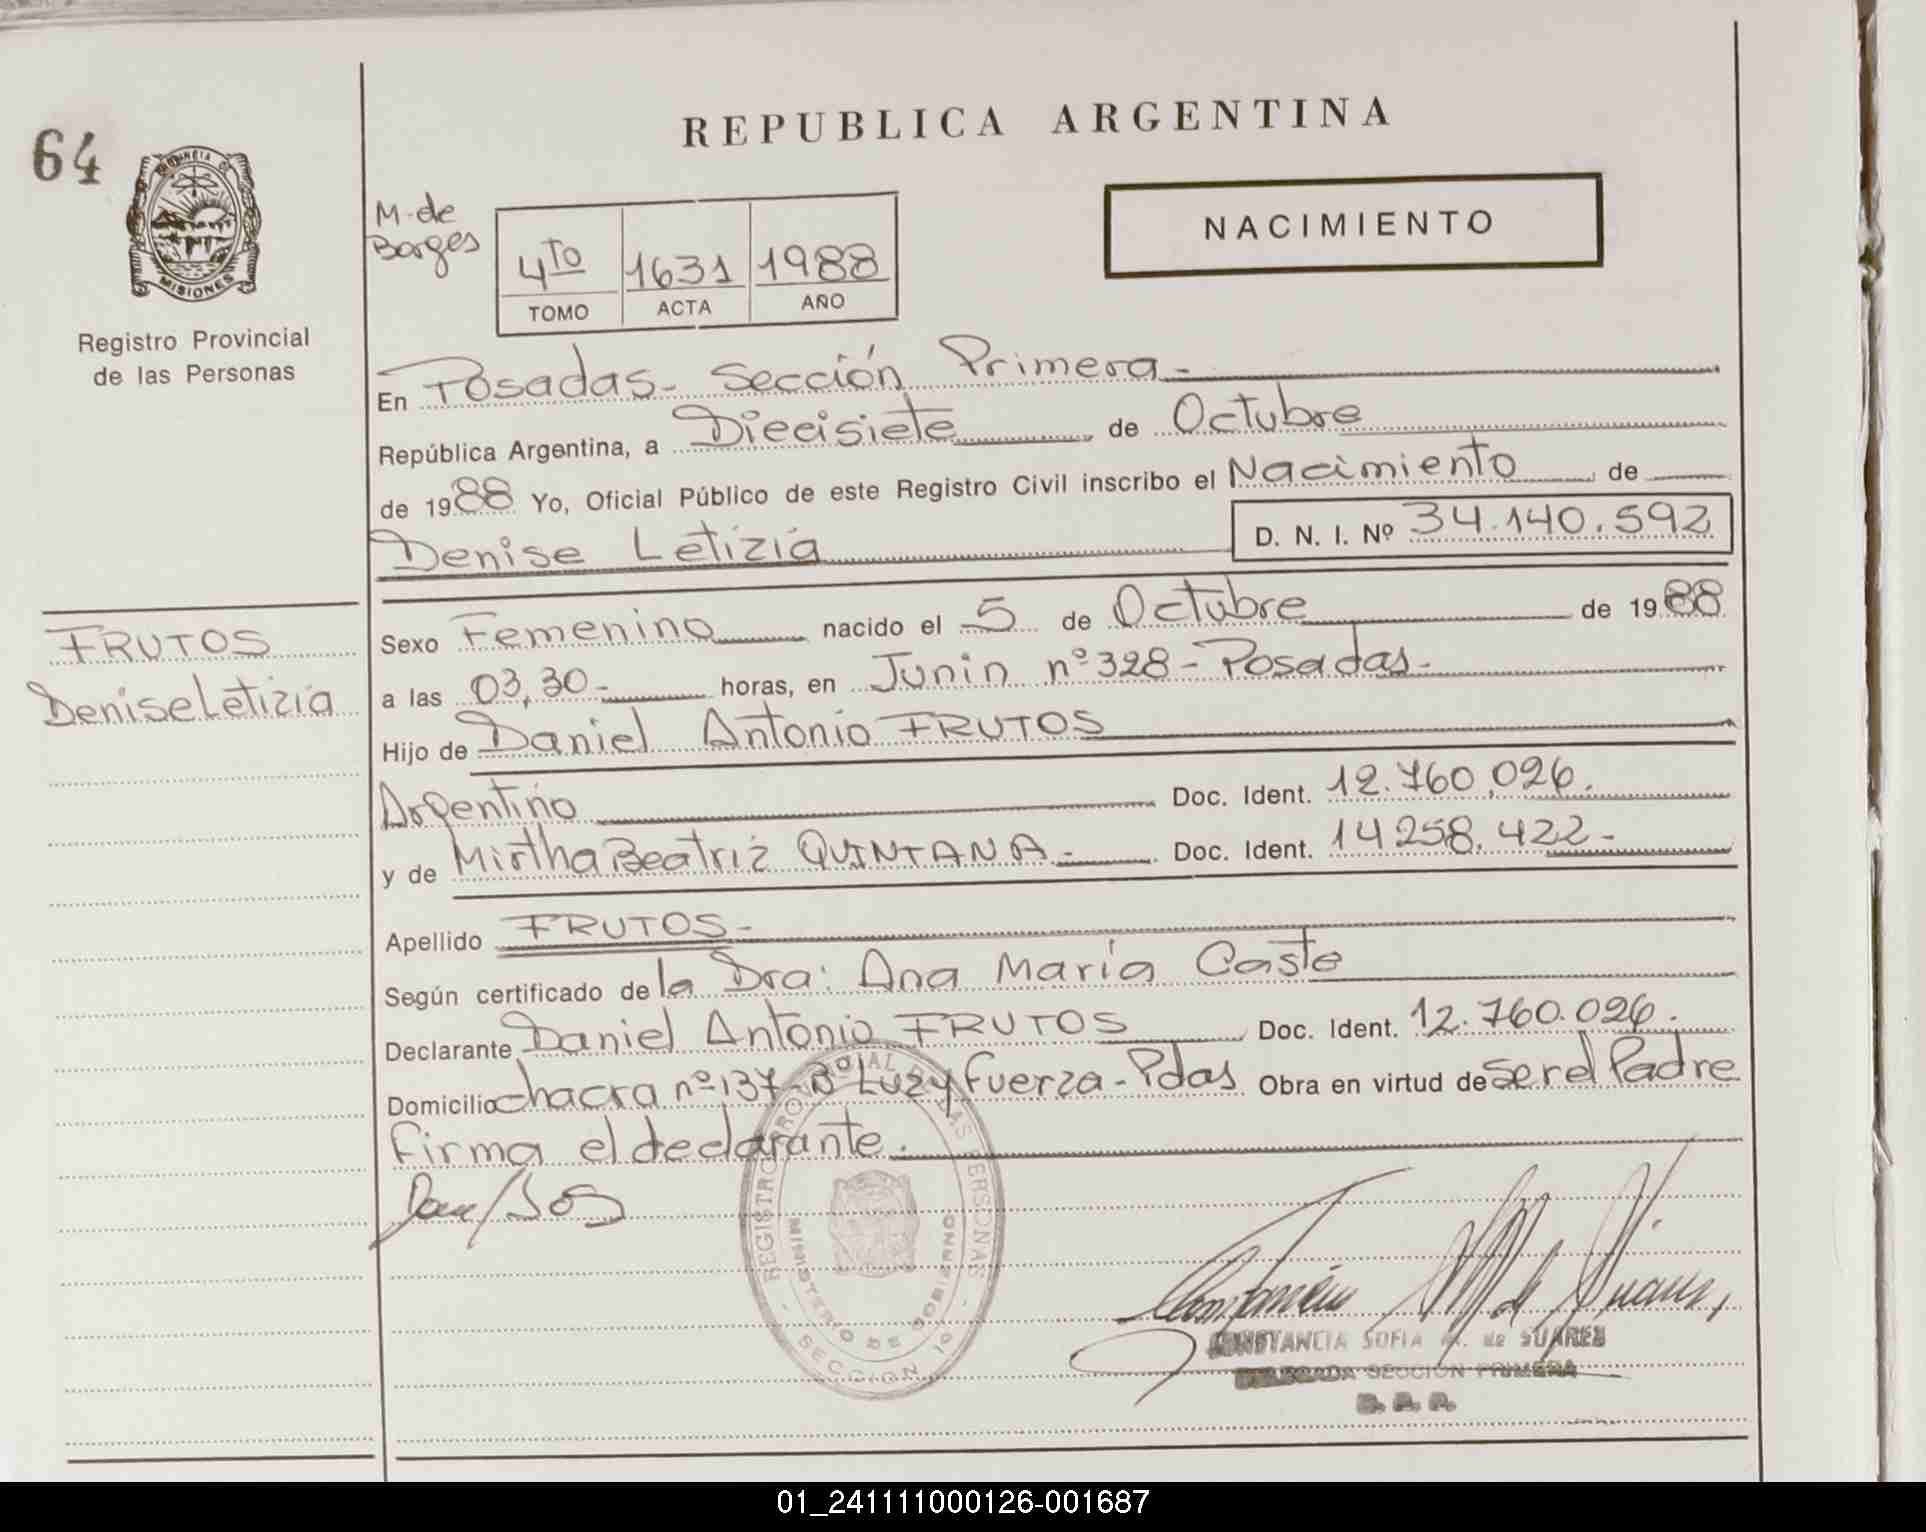 64
PROVINCIA DE
MISIONES
Registro Provincial
de las Personas
REPUBLICA ARGENTINA
M. de
Borges
4TO 1631 1988
TOMO ACTA AÑO
NACIMIENTO
En Posadas - Sección Primera -
República Argentina, a Diecisiete de Octubre
de 1988 Yo, Oficial Público de este Registro Civil inscribo el Nacimiento de
Denise Letizia D. N. I. Nº 34.140.592
FRUTOS
Denise Letizia
Sexo Femenino nacido el 5 de Octubre de 1988
a las 03,30 - horas, en Junin nº 328 - Posadas -
Hijo de Daniel Antonio FRUTOS
Argentino Doc. Ident. 12.760.026.
y de Mirtha Beatriz QUINTANA - Doc. Ident. 14258.422 -
Apellido FRUTOS -
Según certificado de la Dra: Ana María Caste
Declarante Daniel Antonio FRUTOS Doc. Ident. 12.760.026.
Domicilio chacra nº 137 Bº Luz y Fuerza - Pdas Obra en virtud de ser el Padre
firma el declarante.
REGISTRO PROVINCIAL DE LAS PERSONAS
MINISTERIO DE GOBIERNO
- SECCION 1º -
CONSTANCIA SOFIA M. de SUAREZ
DELEGADA SECCION PRIMERA
01_241111000126-001687